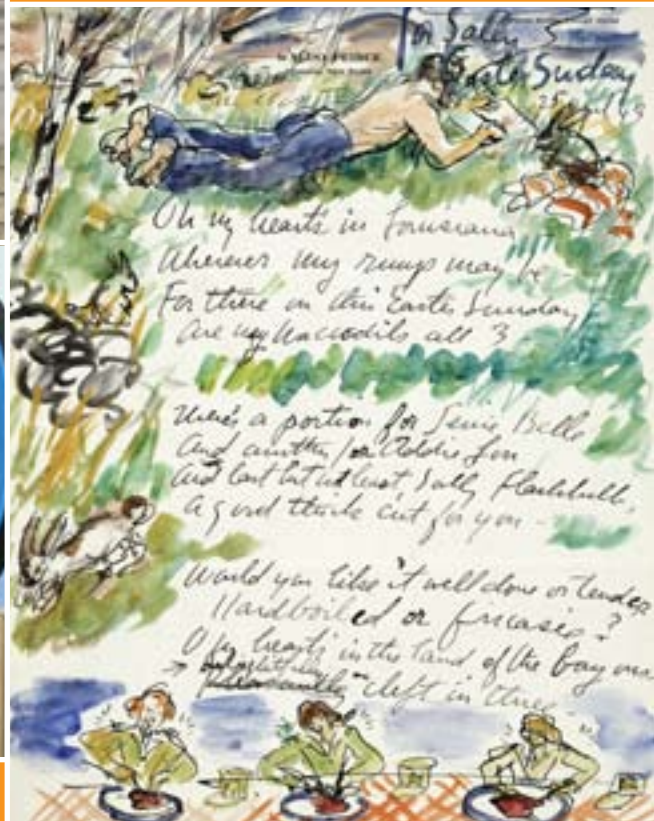 Easter Sunday
Oh my heart's in Louisiana
Wherever my rump may be
For there on this Easter Sunday
Are my all 3
There's a portion for Belle
And another for Addie
And last but not least Sally
A good thick cut for you
Would you like it well done or tender
Hardboiled or fricasie?
O my heart's in the land of the bayou
cleft in three